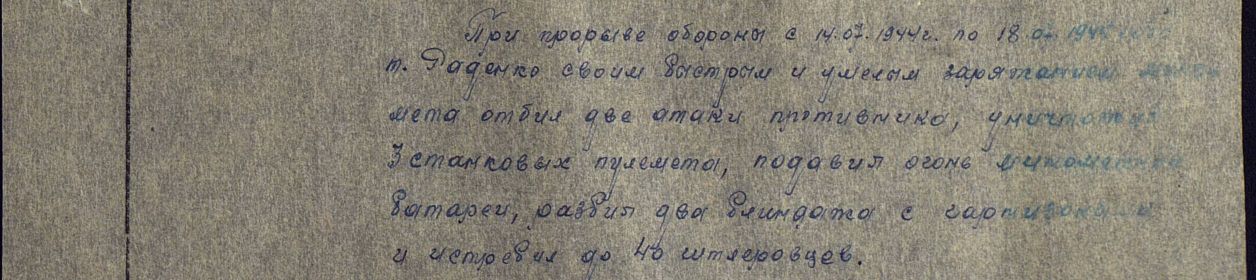 При прорыве обороны с 14.07.1944г. по 18.07.1944 года
т. Раденко своим быстрым и умелым заряжанием мино-
мета отбил две атаки противника, уничтожил
3 станковых пулемета, подавил огонь минометной
батареи, разбил два блиндажа с гарнизонами
и истребил до 40 гитлеровцев.